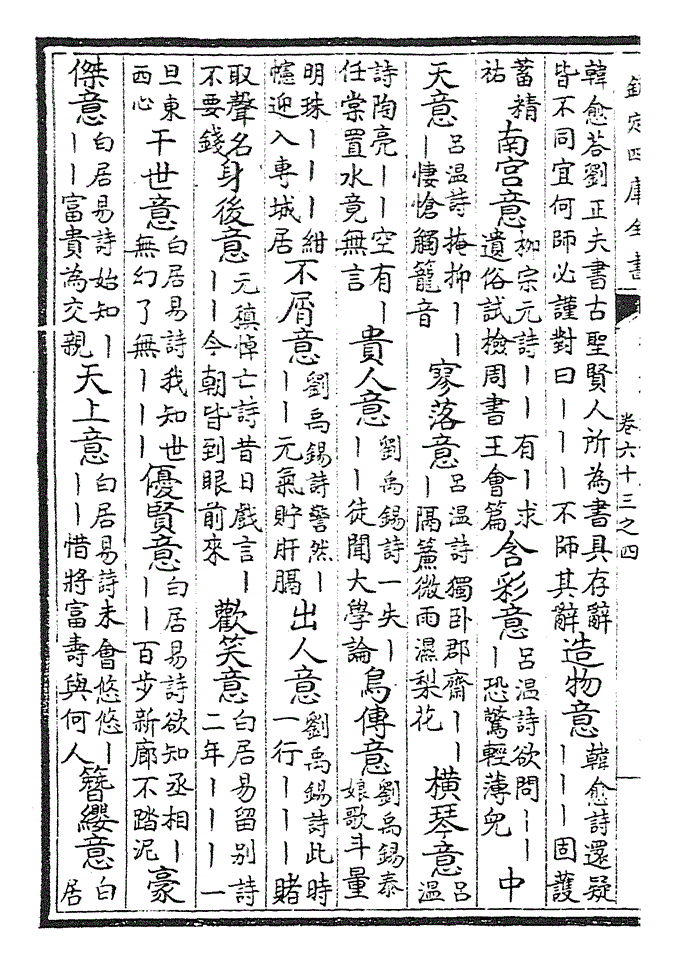 欽定四庫全書
卷六十三之四
韓愈荅劉正夫書古聖賢人所為書具存辭
皆不同宜何師必謹對曰丨丨丨不師其辭
造物意
韓愈詩還疑
丨丨丨固護
蓄精
祐
南宮意
柳宗元詩丨丨有丨求
遺俗試檢周書王會篇
含彩意
呂温詩欲問丨丨
丨恐驚輕薄兒
中
天意
呂温詩掩抑丨丨
丨悽愴觸籠音
寥落意
呂温詩獨卧郡齋丨丨
丨隔簾微雨濕梨花
橫琴意
呂
温
詩陶亮丨丨空有丨
任棠置水竟無言
貴人意
劉禹錫詩一失丨
丨丨徒聞大學論
鳥傳意
劉禹錫泰
娘歌斗量
明珠丨丨丨紺
幰迎入專城居
不屑意
劉禹錫詩謷然丨
丨丨元氣貯肝膈
出人意
劉禹錫詩此時
一行丨丨丨賭
取聲名
不要錢
身後意
元稹悼亡詩昔日戲言丨
丨丨今朝皆到眼前來
歡笑意
白居易留别詩
二年丨丨丨一
旦東
西心
干世意
白居易詩我知世
無幻了無丨丨丨
優賢意
白居易詩欲知丞相丨
丨丨百步新廊不踏泥
豪
傑意
白居易詩始知丨
丨丨富貴為交親
天上意
白居易詩未會悠悠丨
丨丨惜將富壽與何人
簪纓意
白
居